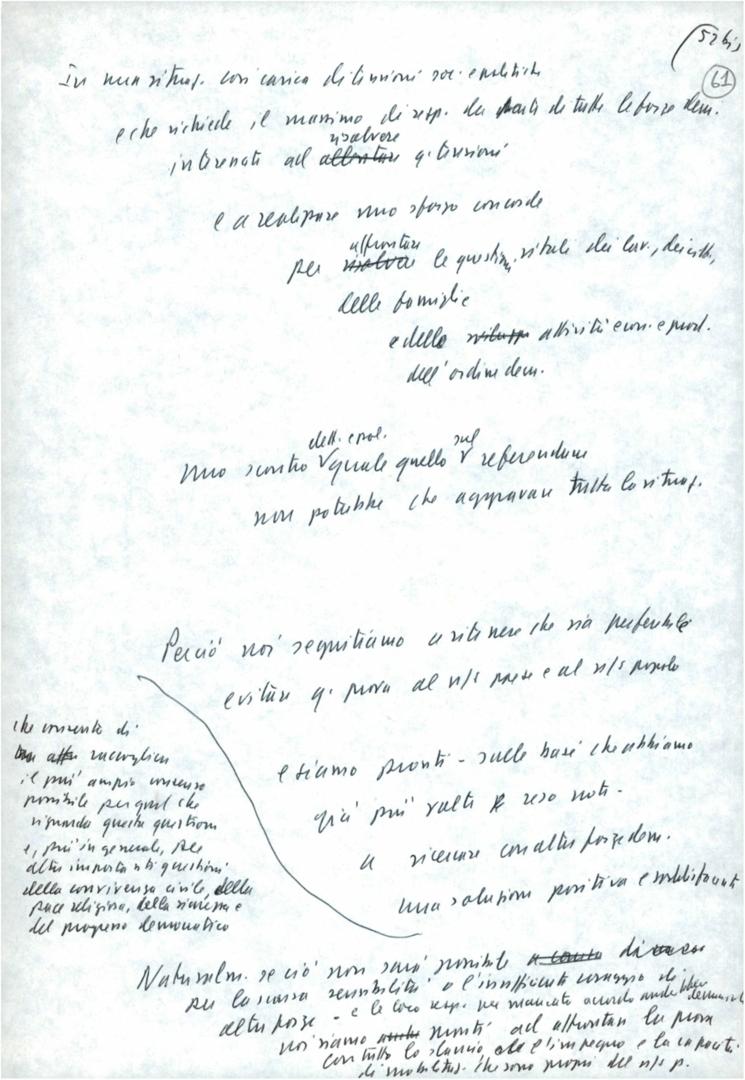 52 bis
61
In una situaz. così carica di tensioni soc. e politiche
e che richiede il massimo di resp. da parte di tutte le forze dem.
risolvere
interessate ad allentare q. tensioni
e a realizzare uno sforzo concorde
affrontare
per risolvere le questioni vitali dei lav., dei citt.,
delle famiglie
e dello sviluppo attività econ. e prod.
dell'ordine dem.
dell. e pol. sul
uno scontro quale quello referendum
non potrebbe che aggravare tutta la situaz.
Perciò noi seguitiamo a ritenere che sia preferibile
evitare q. prova al n/s paese e al n/s popolo
e siamo pronti - sulle basi che abbiamo
già più volte reso noti -
a ricercare con altre forze dem.
una soluzione positiva e soddisfacente
che consenta di
raccogliere
il più ampio consenso
possibile per quel che
riguarda questa questione
e, più in generale, per
altre importanti questioni
della convivenza civile, della
pace religiosa, della sicurezza e
del progresso democratico
Naturalm. se ciò non sarà possibile
per la scarsa sensibilità o l'insufficiente coraggio di
altre forze - e le loro resp. per mancato accordo
noi siamo anche pronti ad affrontare la prova
con tutto lo slancio l'impegno e la capacità
di mobilitaz. che sono propri del n/s p.